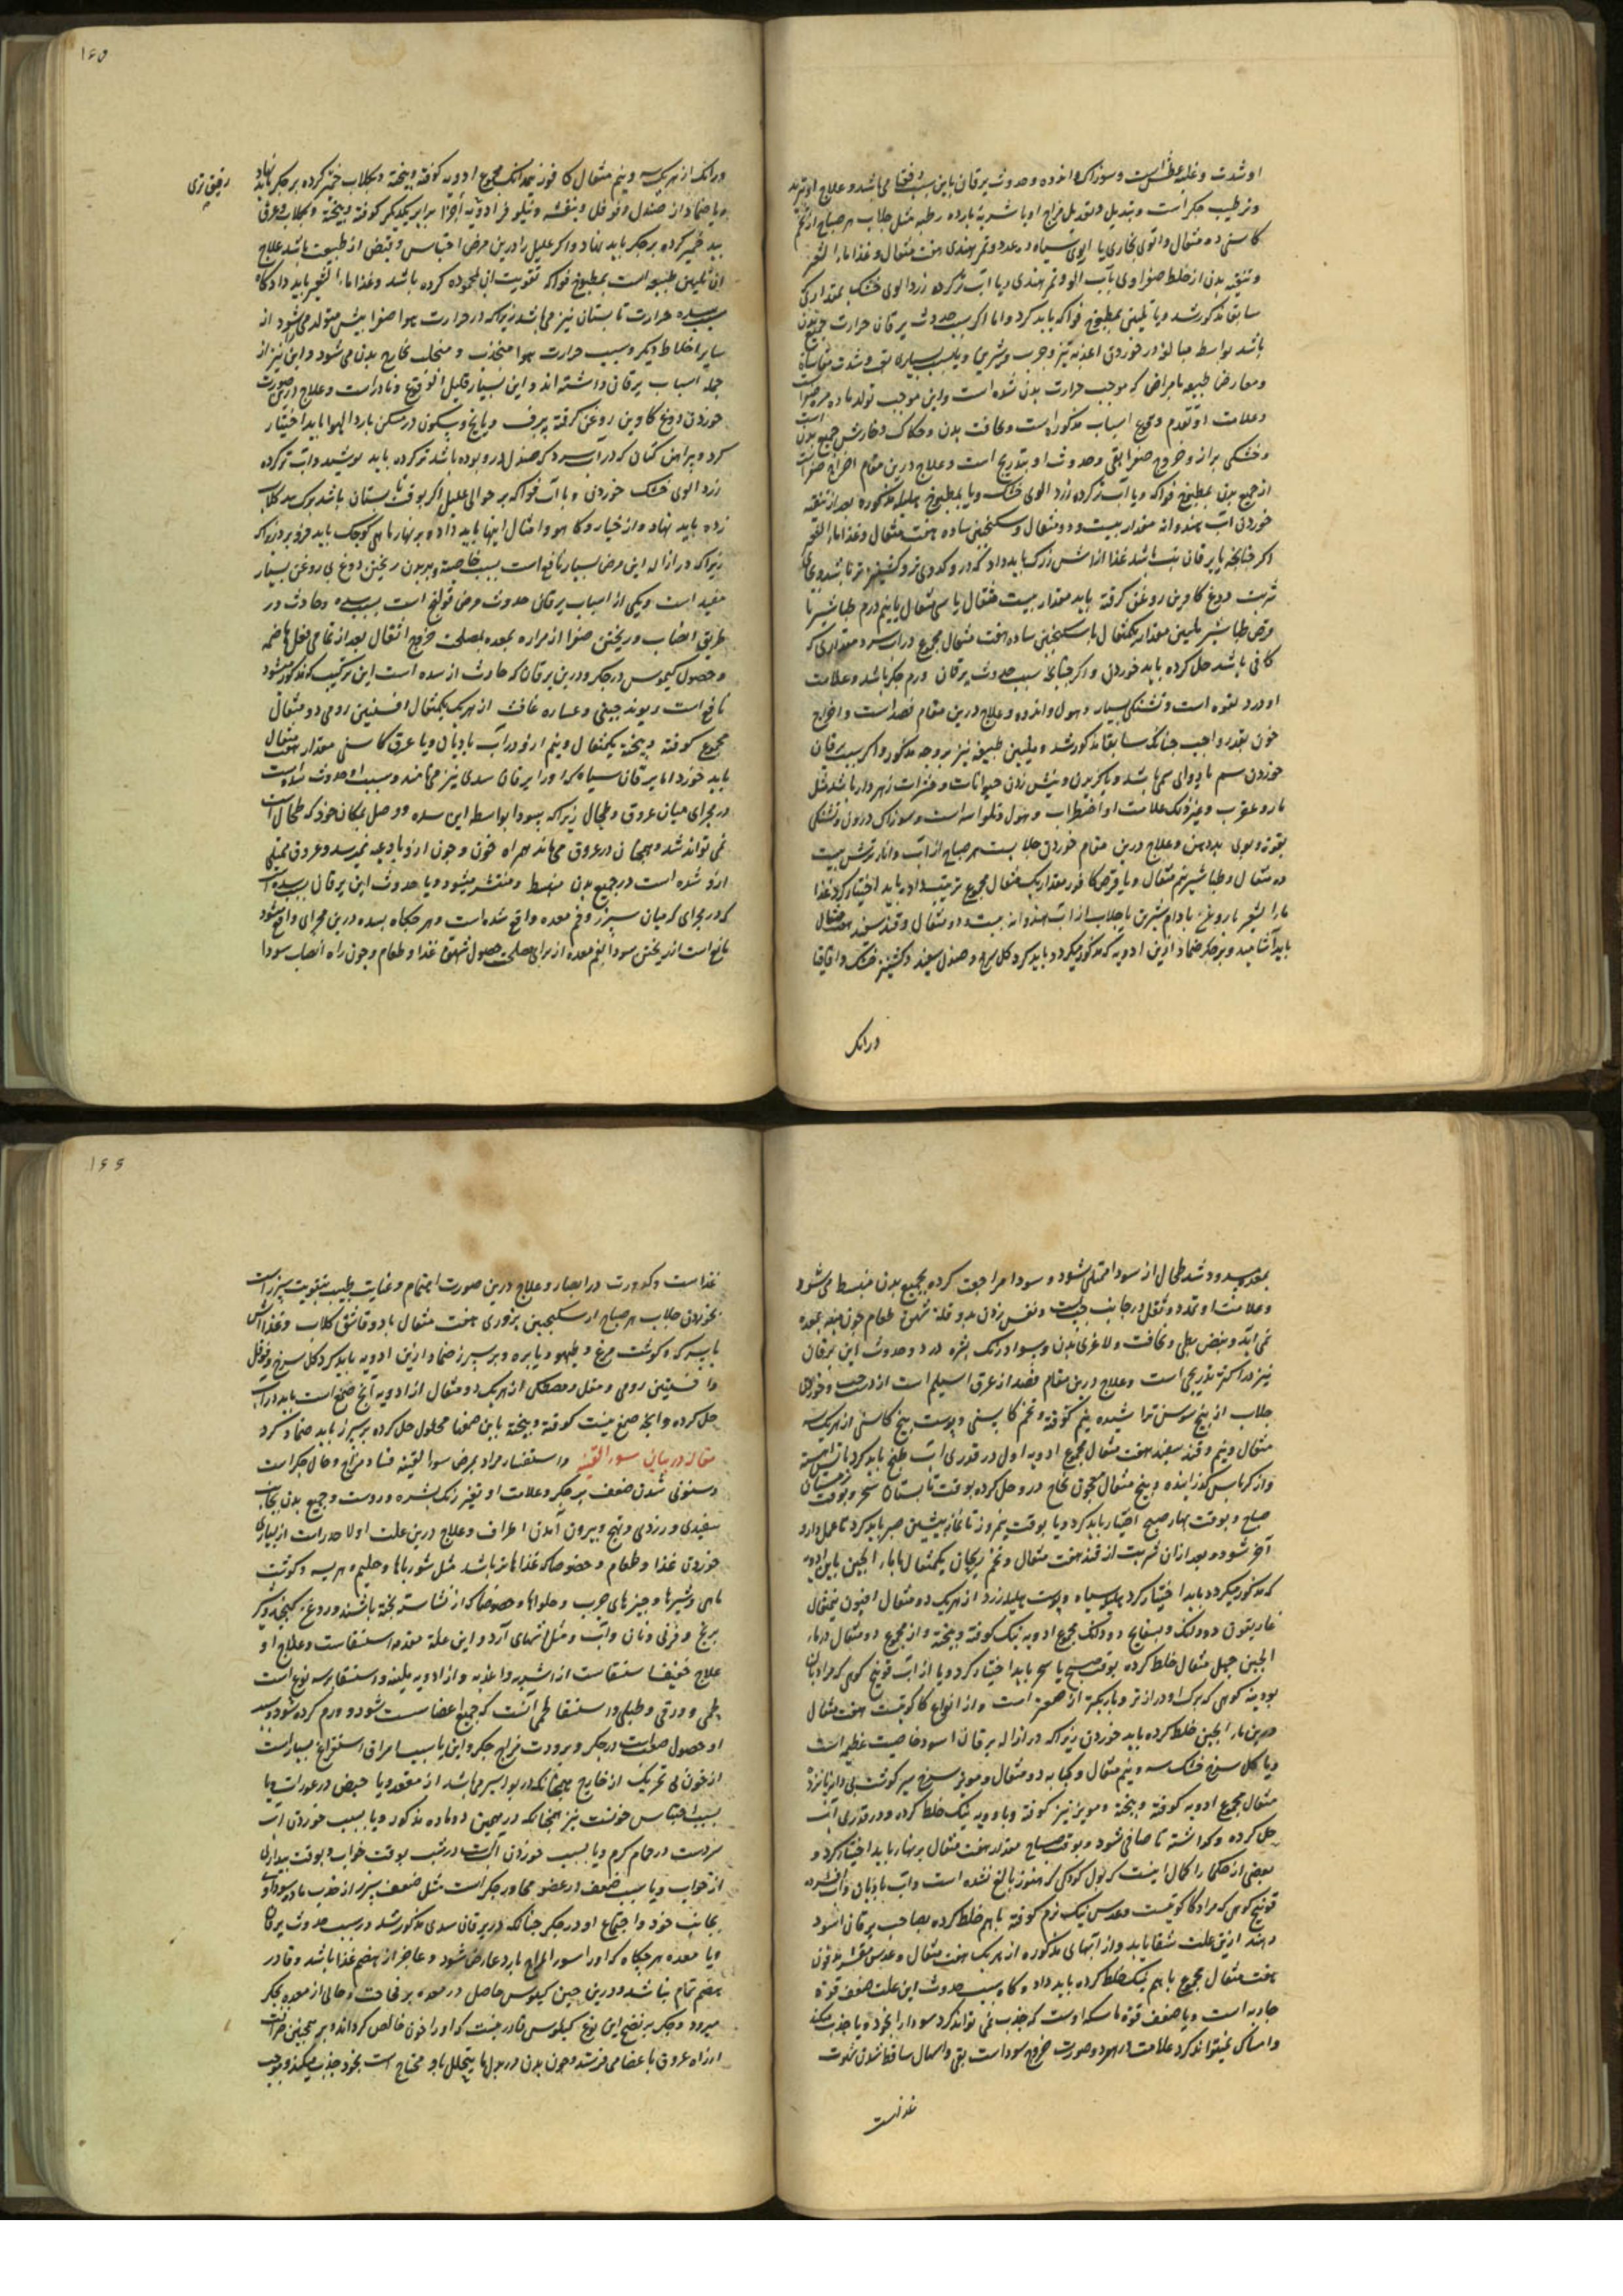 او شدت و غلبه عطش است و سوزاک و اندوه و حدوث یرقان باین سبب می باشد و علاج او تبرید
و ترطیب جگر است و تبدیل و تعدیل مزاج او باشربه بارده رطبه مثل جلاب هر صباح از تخم
کاسنی ده مثقال و آلوی بخاری یا آلوی سیاه ده عدد و تمر هندی هفت مثقال و غذا ماء الشعیر
و تنقیه بدن از خلط صفراوی بآب آلو و تمر هندی و یا آب تر کرده زردالوی خشک بمقداری که
سابقا مذکور شد و یا تلیینی بمطبوخ فواکه باید کرد و اما اگر سبب حدوث یرقان حرارت جمیع بدن
باشد بواسطه مبالغه در خوردن اغذیه تیز و چرب و شیرین و یا بسبب بسیاری تب و شدت
و معارضا طبیعه بامراض که موجب حرارت بدن شده است و این موجب تولد ماده مره صفرا است
و علامت او تقدم وقوع اسباب مذکوره است و نحافت بدن و حکاک و خارش جمیع بدن
و خشکی براز و خروج صفرا بقی و حدوث او بتدریج است و علاج درین مقام اخراج صفراست
از جمیع بدن بمطبوخ فواکه و یا آب تر کرده زردالوی خشک و یا بمطبوخ هلیله مذکوره بعد از تنقیه
خوردن آب هندوانه مقدار بیست و دو مثقال و سکنجبین ساده هفت مثقال و غذا ماء الشعیر
اگر چنانچه با یرقان تب باشد غذا از آش زرک باید داد که درو کدوی تر و کشنیز تر باشد و بجای
شربت دوغ گاو بن روغن گرفته باید مقدار بیست مثقال یا سی مثقال با نیم درم طباشیر یا
قرص طباشیر ملین مقدار یکمثقال با سکنجبین ساده هفت مثقال مجموع در آب سرد مقداری که
کافی باشد حل کرده باید خوردن و اگر چنانچه سبب حدوث یرقان ورم جگر باشد و علامت
او درد لقوه است و تشنگی بسیار و هول و اندوه و علاج درین مقام فصد است و اخراج
خون بقدر واجب چنانکه سابقا مذکور شد و تلیین طبیعه نیز بر وجه مذکور و اگر سبب یرقان
خوردن سم یا دوای سمی باشد و یا گزیدن و نیش زدن حیوانات و حشرات زهردار باشد مثل
مار و عقرب و غیر ذلک علامت او اضطراب و هول و تلواسه است و سوزاک درون و تشنگی
بقوت و بوی بد دهن و علاج درین مقام خوردن جلابست هر صباح از آب و انار ترش بیست
ده مثقال و طباشیر نیم مثقال و یا قرص کافور مقدار یک مثقال مجموع ترتیب داده باید اختیار کرد غذا
ماء الشعیر با روغن بادام شیرین یا جلاب از آب هندوانه بیست و دو مثقال و قند سفید هفت مثقال
باید آشامید و بر جگر ضماد ازین ادویه که مذکور میگردد باید کرد گل سرخ و صندل سفید و کشنیز خشک و اقاقیا
درانک
۱۶۵
درانک از هریک سه و نیم مثقال کافور نیمدانک مجموع ادویه کوفته و بیخته و بکلاب خمیر کرده بر جگر باید نهاد
و یا ضماد از صندل و فوفل و بنفشه و نیلوفر ادویه اجزا برابر یکدیگر کوفته و بیخته و بکلاب و عرق
بید خمیر کرده بر جگر باید نهاد و اگر علیل را درین مرض احتباس و قبض از طبیعت باشد علاج
آن تلیین طبیعه است بمطبوخ فواکه تقویت آن بمحموده کرده باشد و غذا ماء الشعیر باید داد و گاه
حرارت تابستان نیز می باشد زیراکه در حرارت هوا صفرا بیش متولد می شود از
سایر اخلاط دیگر و سبب حرارت هوا منجذب و منجلب بخارج بدن می شود و این نیز از
جمله اسباب یرقان داشته اند و این بسیار قلیل الوقوع و نادر است و علاج درین صورت
خوردن دوغ گاو بن روغن گرفته ببرف و یا یخ و سکون در مسکن بارد الهوا باید اختیار
کرد و پیراهن کتان که در آب سرد که صندل درو بوده باشد تر کرده باید پوشید و آب تر کرده
زردالوی خشک خوردن و با آب فواکه بر حوالی علیل اگر بوقت تابستان باشد برک بید کلاب
زده باید نهاد و از خیار و کاهو و امثال اینها باید داد و بر نهار ماهی کوچک باید فرو برد زنده
زیراکه در ازاله این مرض بسیار نافع است بسبب خاصیة و بر بدن ریختن دوغ بی روغن بسیار
مفید است و یکی از اسباب یرقان حدوث مرض قولنج است بسبب سده و حادث در
طریق انصباب و ریختن صفرا از مراره بمعده بمصلحت خروج اثقال بعد از تمامی فعل هاضمه
و حصول کیموس در جگر و درین یرقان که حادث از سده است این ترکیب که مذکور میشود
نافع است ریوند چینی و عصاره غافث از هریک یکمثقال افسنتین رومی دو مثقال
مجموع کوفته و بیخته یکمثقال و نیم ازو در آب بادیان و یا عرق کاسنی مقدار هفت مثقال
باید خورد اما یرقان سیاه که او را یرقان سدی نیز می نامند و سبب او حدوث سده است
در مجرای میان عروق و طحال زیراکه سودا بواسطه این سده و وصل بمکان خود که طحال است
نمی تواند شد و همچنان در عروق می ماند همراه خون و چون ازو باوعیه نمیرسد و عروق ممتلی
ازو شده است در جمیع بدن منبسط و منتشر میشود و یا حدوث این یرقان بسبب سده است
که در مجرای که میان سپرز و فم معده واقع شده است و هر چگاه سده درین مجرای واقع شود
مانع است از ریختن سودا بفم معده از برای مصلحت حصول شهوة غذا و طعام و چون راه انصباب سودا
بمعده مسدود شد طحال از سودا ممتلی شود و سودا مراجعت کرده بجمیع بدن منبسط می شود
و علامت او تمدد و ثقل در جانب چپ است و نفس زدن بد و قلة شهوة طعام چون بمعده
نمی آید و نبض بطی و نحافت و لاغری بدن و سواد رنگ بشره دارد و حدوث این یرقان
نیز در اکثر بتدریجی است و علاج درین مقام فصد از عرق اسیلم است از دست چپ و خوردن
جلاب از بیخ سوسن تراشیده نیم کوفته و تخم کاسنی و پوست بیخ کاسنی از هریک سه
مثقال و نیم و قند سفید هفت مثقال مجموع ادویه اول در قدری آب طبخ باید کرد
و از کرباس گذرانیده و پنج مثقال معجون نجاح درو حل کرده بوقت تابستان سحر و بوقت زمستان
صباح و بوقت بهار صبح اختیار باید کرد و یا بوقت نیمروز تا نماز پیشین صبر باید کرد تا عمل دارو
آخر شود و بعد از آن شربت از قند هفت مثقال و تخم ریحان یکمثقال با ماء الجبن باین ادویه
که مذکور میگردد باید اختیار کرد هلیله سیاه و پوست هلیله زرد از هریک دو مثقال افتیمون نیمثقال
غاریقون دو دانک و بسفایج دو دانک مجموع ادویه نیک کوفته و بیخته و از مجموع دو مثقال در ماء
الجبن چهل مثقال خلط کرده بوقت صبح یا سحر باید اختیار کرد و یا از آب فوتنج کوهی که مراد بآن
پودینه کوهی که برک او درازتر و باریکتر از صعتر است و از انواع کاکوتیست هفت مثقال
درین ماء الجبن خلط کرده باید خوردن زیراکه در ازاله یرقان اسود خاصیت عظیمه است
و یا گل سرخ خشک سه و نیم مثقال و کبابه دو مثقال و مویز سرخ سیر گوشت بی دانه پانزده
مثقال مجموع ادویه کوفته و بیخته و مویز نیز کوفته و با ادویه نیک خلط کرده و در قدری آب
حل کرده و گذاشته تا صافی شود و بوقت صباح مقدار هفت مثقال بر نهار باید اختیار کرد و
بعضی از حکما را گمان اینست که بول کودکی که هنوز بالغ نشده است و آب بادیان و آب افشرده
فوتنج کوهی که مراد کاکوتیست و عدس نیک نرم کوفته باهم خلط کرده بصاحب یرقان اسود
دهند ازین علت شفا یابد و از آبهای مذکوره از هریک هفت مثقال و عدس مقشر مدقوق
هفت مثقال مجموع باهم نیک خلط کرده باید داد و گاه سبب حدوث این علت ضعف قوة
جاذبه است و یا ضعف قوة ماسکه اوست که جذب نمی تواند کرد سودا را بخود و یا جذب میکند
و امساک نمیتواند کرد علامت در هر دو صورت خروج سوداست بقی و اسهال ساقط شدن شهوت
غذاست
۱۶۶
غذاست و کدورت در ابصار و علاج درین صورت اهتمام و عنایت طبیب بتقویت سپرز است
بخوردن جلاب هر صباح از سکنجبین بزوری هفت مثقال با دو قاشق کلاب و غذا آش
با سرکه و گوشت مرغ و طیهو و یا بره و بر سپرز ضماد ازین ادویه باید کرد گل سرخ و فوفل
و افسنتین رومی و مقل و مصطکی از هریک دو مثقال از ادویه آنچ صمغ است باید در آب
حل کرده و آنچه صمغ نیست کوفته و بیخته باین صمغها محلول حل کرده بر سپرز باید ضماد کرد
مقاله در بیان سوء القنیه و استسقا مراد بمرض سوء القنیه فساد مزاج و حال جگر است
و مستولی شدن ضعف بر جگر و علامت او تغیر رنگ بشره و روست و جمیع بدن بجانب
سفیدی و زردی و تهبج و بیرون آمدن اطراف و علاج درین علت اولا حذر است از بسیاری
خوردن غذا و طعام و خصوصا که غذاها تر باشد مثل شورباها و حلیم و هریسه و گوشت
ماهی و شیرها و چیزهای چرب و حلواها و خصوصا که از نشاسته پخته باشند و روغن کنجد و شیر
برنج و فرنی و نان و آب و مثل آشهای آرد و این علة مقدمه استسقاست و علاج او
علاج خفیف استسقاست از اشربه و اغذیه و از ادویه ملینه و استسقا بر سه نوع است
لحمی و زقی و طبلی و استسقا لحمی آنست که جمیع اعضا سست شود و ورم کرده شود و سبب
او حصول ضعف است در جگر و برودت مزاج جگر و این یا بسبب افراق استفراغ بسیار است
از خون بی تحریک از خارج همچنانکه در بواسیر می باشد از مقعد و یا حیض در عورات و یا
بسبب احتباس خونست نیز همچنانکه در همین دو ماده مذکور و یا بسبب خوردن آب
سردست در حمام گرم و یا بسبب خوردن آبست در شب بوقت خواب و بوقت بیداری
از خواب و یا سبب ضعف در عضو مجاور جگر است مثل ضعف سپرز از جذب ماده سوداوی
بجانب خود و اجتماع او در جگر چنانکه در یرقان سدی مذکور شد در سبب حدوث یرقان
و یا معده هر چگاه که او را سوء المزاج بارد عارض شود و عاجز از هضم غذا باشد و قادر
بهضم تمام نباشد و درین حین کیلوس حاصل در معده بر فجاجت و خامی از معده بجگر
میرود و جگر بر نضج این نوع کیلوس قادر نیست که او را خون خالص گرداند و بر همچنین حالت
از راه عروق باعضا می فرستد و چون بدن در بدل ما یتحلل باو محتاج است بخود جذب میکند و بموجب